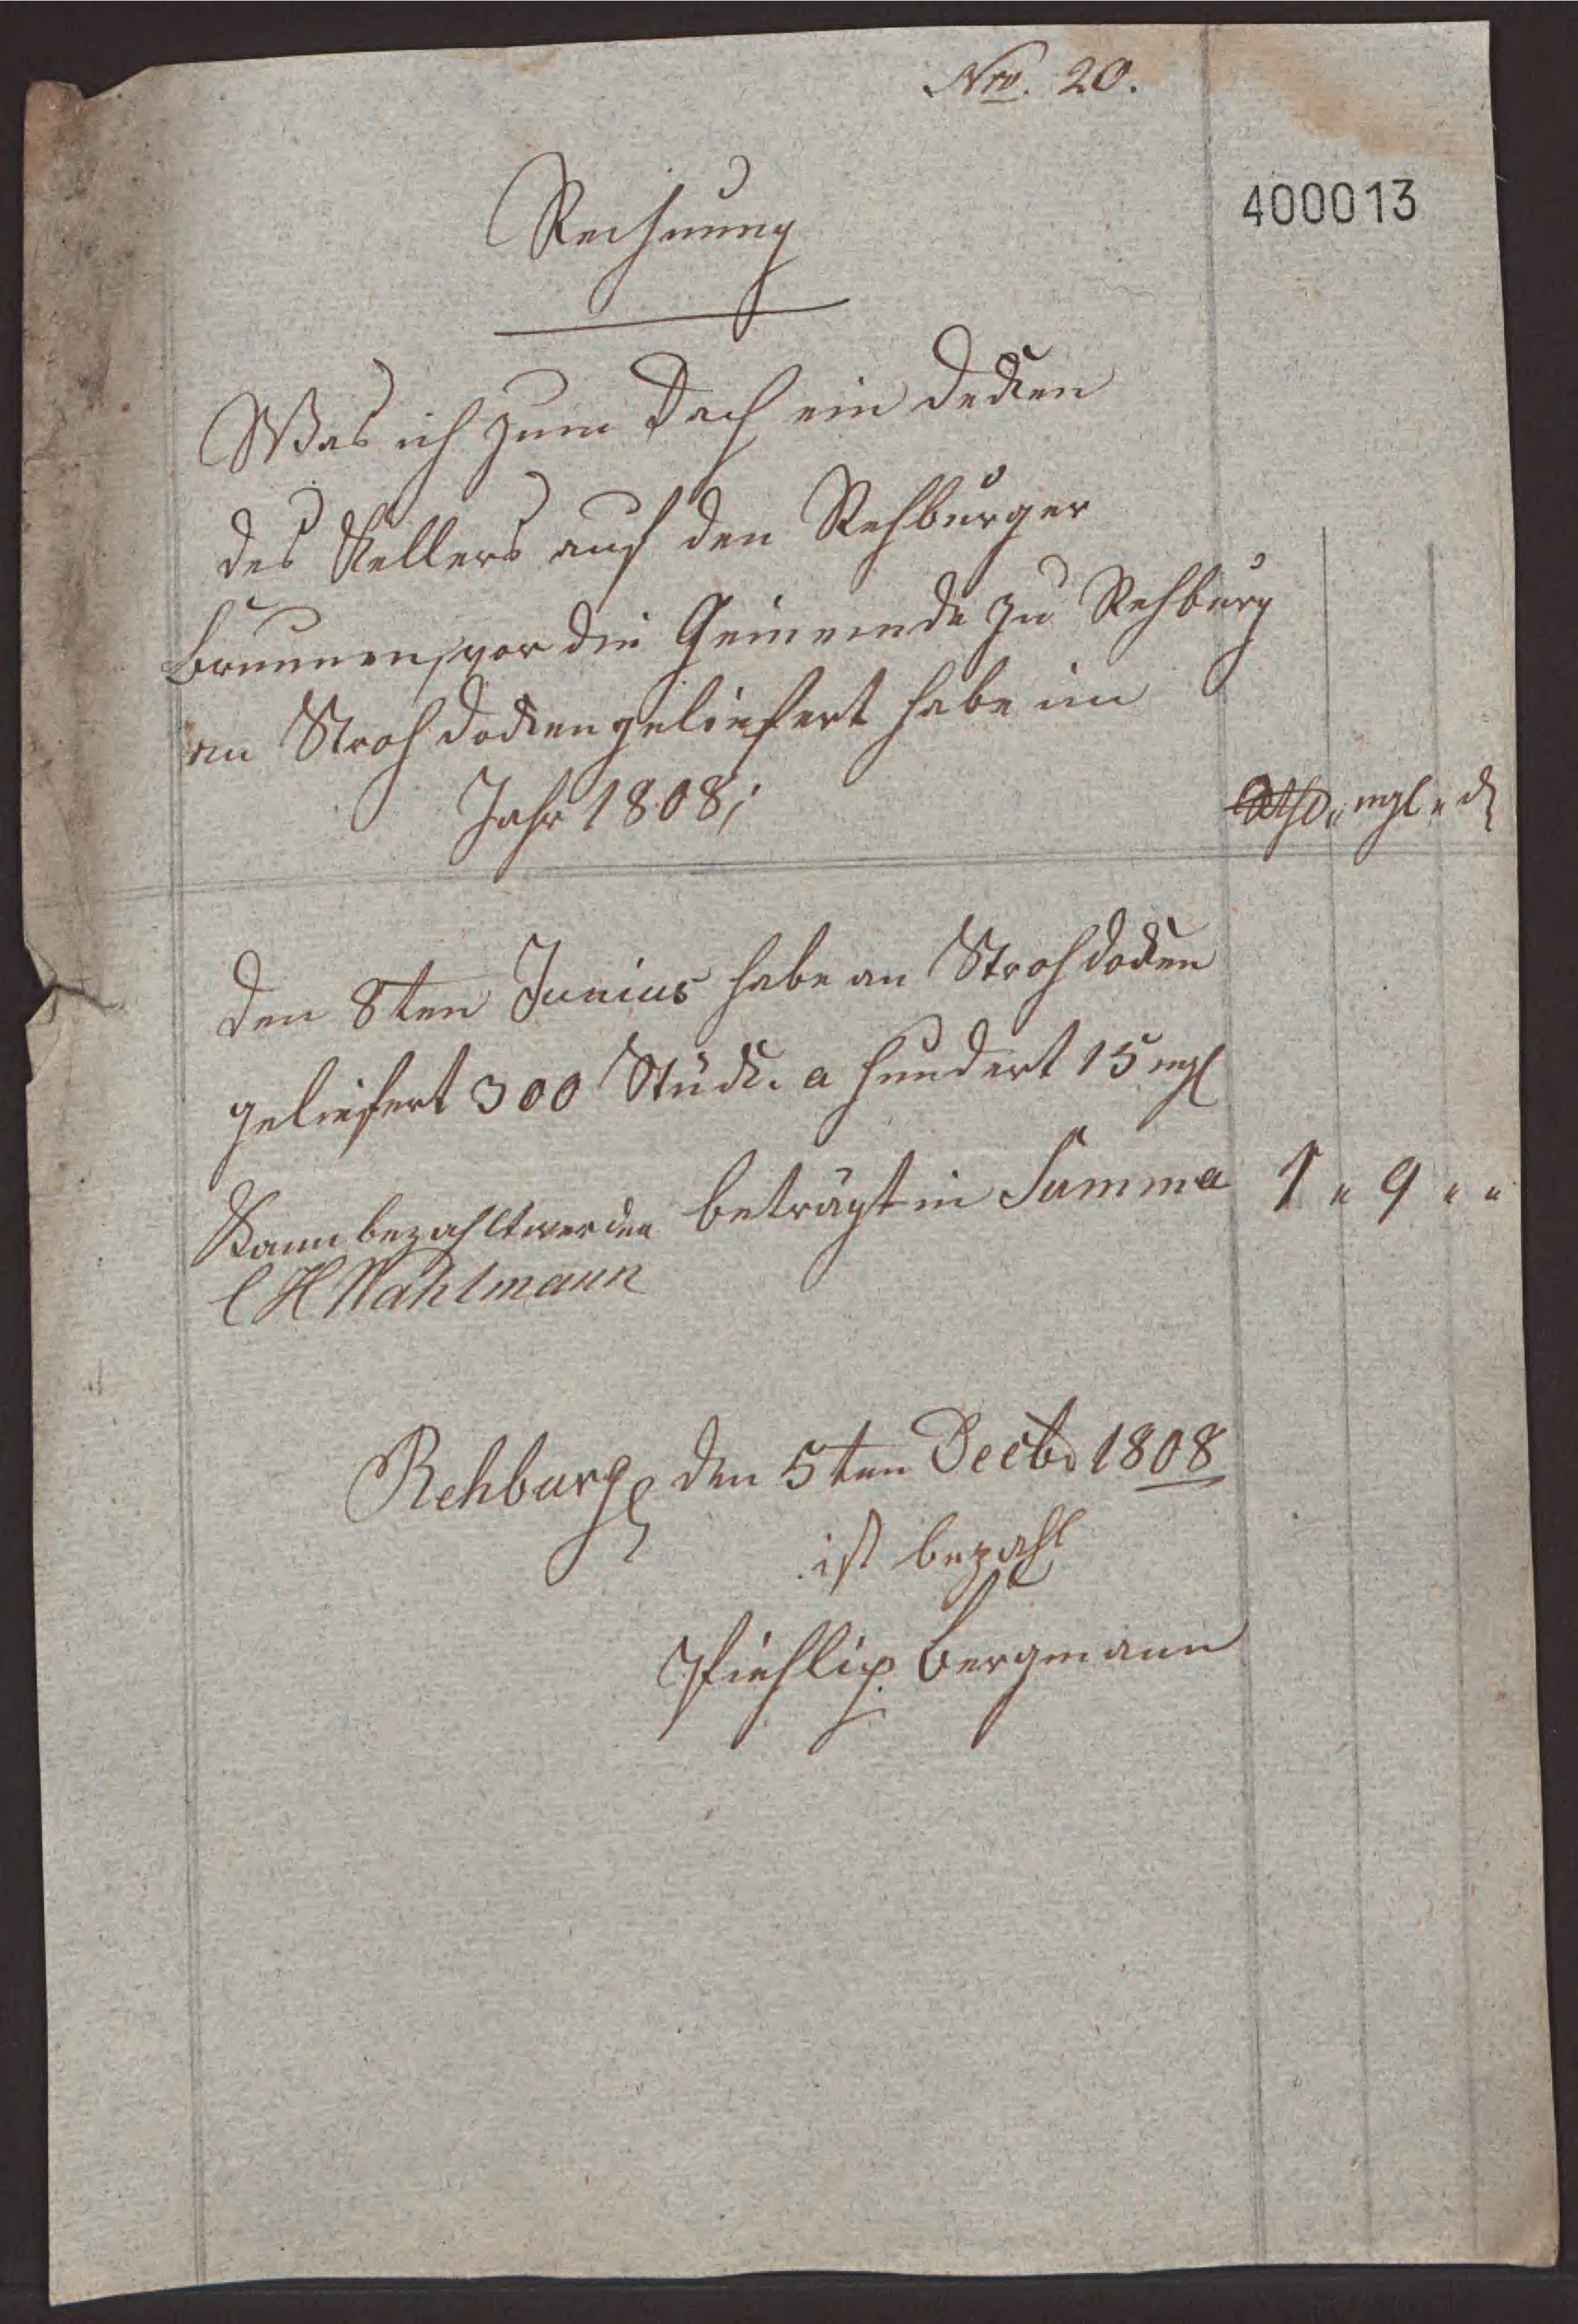 Nro. 20.
400013
Rechnung
Was ich zum Dach ein decken
des Kellers auf den Rehburger
Brunnen, vor die Gemeinde zu Rehburg
an Stroh docken geliefert habe im
Jahr 1808;
Rthl. " mgl " d
den 8ten Junius habe an Stroh docken
geliefert 300 Stück. a hundert 15 mgl
beträgt in Summa 1 " 9 " "
Kann bezahlt werden
C H Wahlmann
Rehburg den 5ten Decbr 1808
ist bezahlt
Fiehlip Bergmann